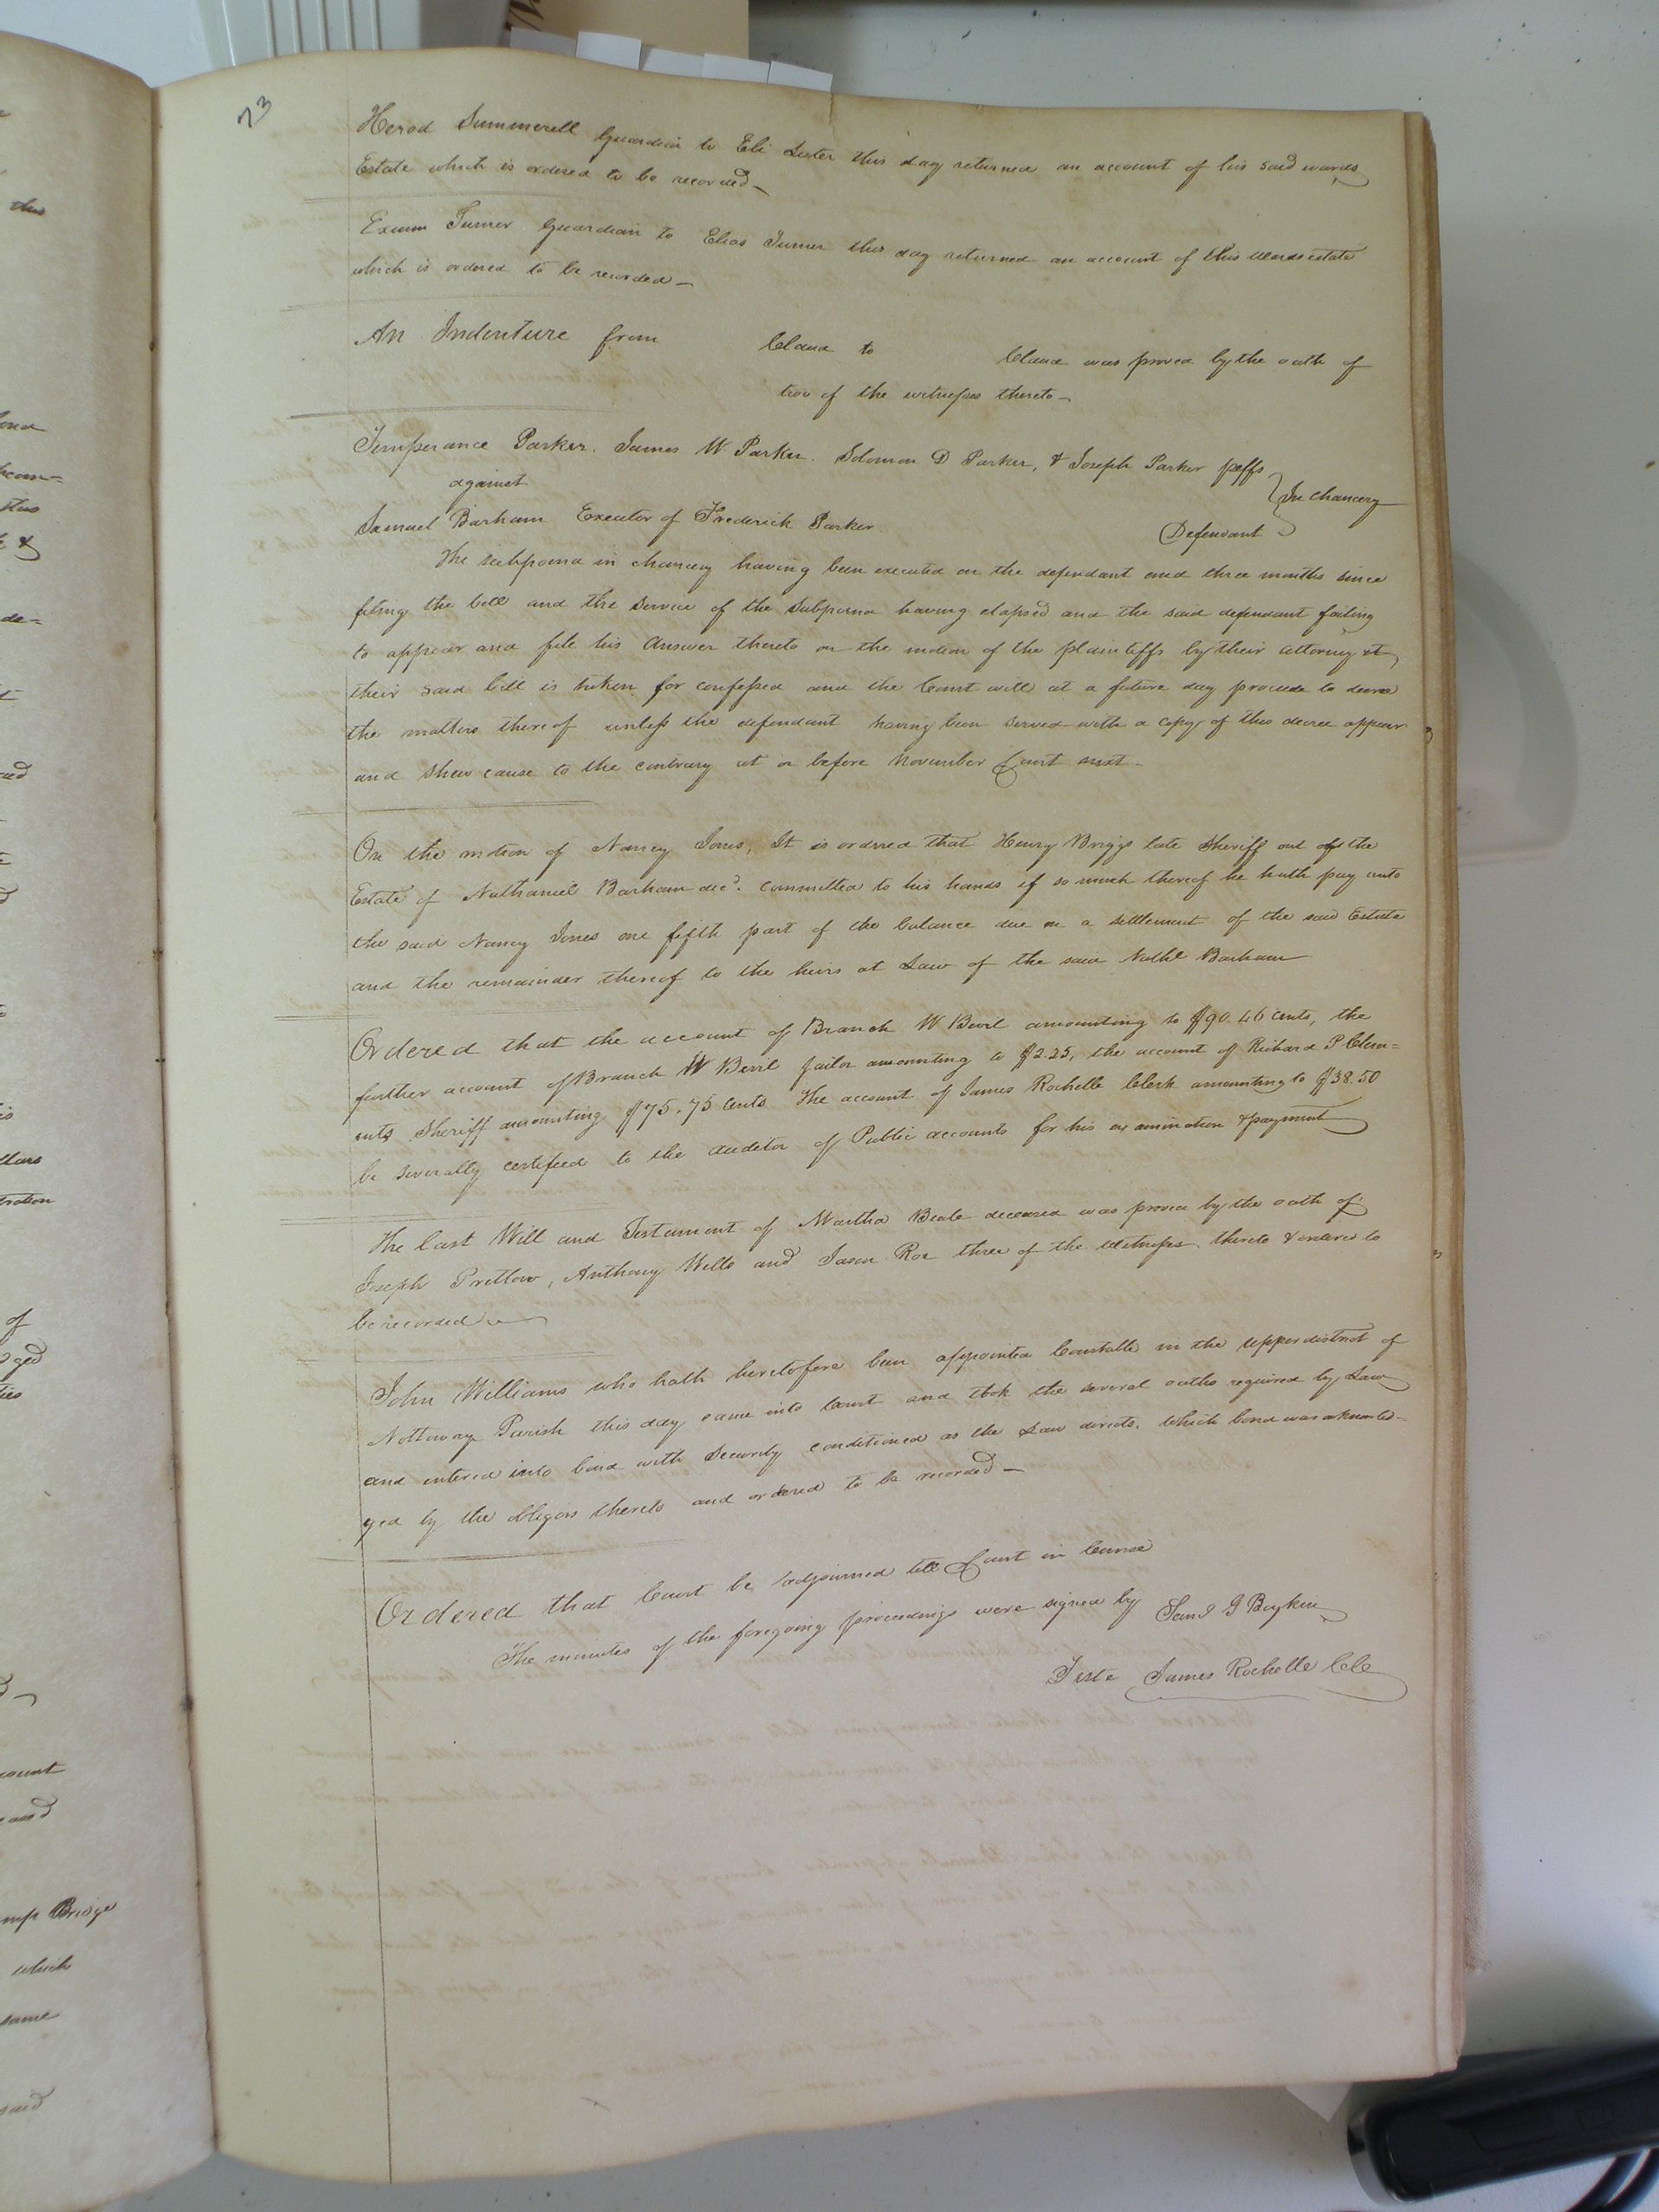 this
ond
this
de=
ced
llars
tration
of
ties
count
mps Bridge
which
same
said
73
Herod Summerell Guardian to Eli Lester this day returned an account of his said wards
Estate which is ordered to be recorded
Exum Turner Guardian to Elias Turner this day returned an account of this wards estate
which is ordered to be recorded
An Indenture from Claud to Claud was proved by the oath of
two of the witnesses thereto
Temperance Parker. James W Parker. Solomon D Parker, & Joseph Parker plffs
against
In Chancery
Samuel Barham Executor of Frederick Parker Defendant
The subpoena in chancery having been executed on the defendant and three months since
filing the bill and the service of the Subpoena having elapsed and the said defendant failing
to appear and file his Answer thereto on the motion of the plaintiffs by their attorney
their said bill is taken for confessed and the Court will at a future day procede to decree
the matters thereof unless the defendant having been served with a copy of this decree appear
and shew cause to the contrary at or before November Court next.
On the motion of Nancy Jones, It is ordered that Henry Briggs late Sheriff out of the
Estate of Nathaniel Barham decd. Committed to his hands if so much thereof he hath pay unto
the said Nancy Jones one fifth part of the balance due on a settlement of the said Estate
and the remainder thereof to the heirs at Law of the said Nathl Barham
Ordered that the account of Branch W Bevil amounting to $90.46 cents, the
further account of Branch W Bevil Jailor amounting to $2.25, the account of Richard P Clem=
ents Sheriff amounting $75.75 Cents The account of James Rochelle Clerk amounting to $38.50
be severally certified to the auditor of Public accounts for his examination & payment
The last Will and Testament of Martha Beale deceased was proved by the oath of
Joseph Pretlow, Anthony Wells and Jason Roe three of the witnesses thereto & ordered to
be recorded
John Williams who hath heretofore been appointed Constable in the upper district of
Nottoway Parish this day came into Court and took the several oaths required by Law
and entered into bond with Security conditioned as the Law directs. Which bond was acknowled-
ged by the obligors thereto and ordered to be recorded
Ordered that Court be adjourned till Court in Course
The minutes of the foregoing proceedings were signed by Saml G Boykin
Teste James Rochelle Clk